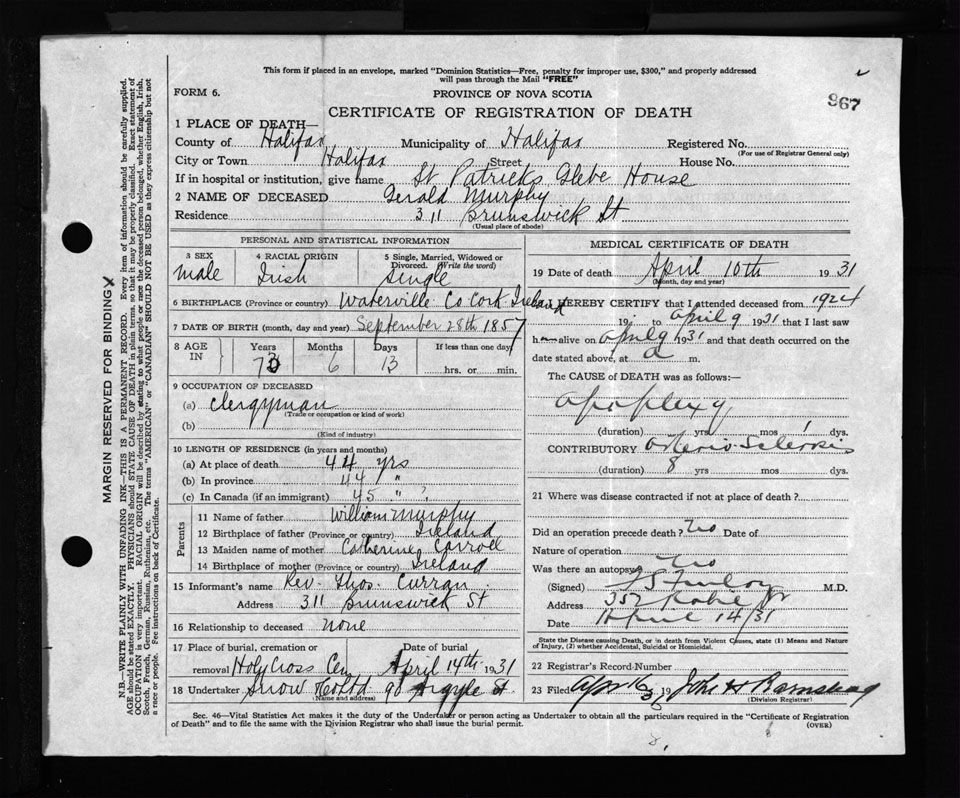 This form if placed in an envelope, marked "Dominion Statistics—Free, penalty for improper use, $300," and properly addressed
will pass through the Mail "FREE"
FORM 6.
PROVINCE OF NOVA SCOTIA
967
CERTIFICATE OF REGISTRATION OF DEATH
1 PLACE OF DEATH—
County of Halifax Municipality of Halifax Registered No.
(For use of Registrar General only)
City or Town Halifax Street House No.
If in hospital or institution, give name St Patricks Glebe House
2 NAME OF DECEASED Gerald Murphy
Residence 311 Brunswick St
(Usual place of abode)
PERSONAL AND STATISTICAL INFORMATION
3 SEX 4 RACIAL ORIGIN 5 Single, Married, Widowed or Divorced. (Write the word)
Male Irish Single
6 BIRTHPLACE (Province or country) Waterville Co Cork Ireland
7 DATE OF BIRTH (month, day and year) September 28th 1857
8 AGE IN Years Months Days If less than one day
73 6 13 hrs. or min.
9 OCCUPATION OF DECEASED
(a) Clergyman
(Trade or occupation or kind of work)
(b)
(Kind of industry)
10 LENGTH OF RESIDENCE (in years and months)
(a) At place of death 44 yrs
(b) In province 44 "
(c) In Canada (if an immigrant) 45 " "
Parents
11 Name of father William Murphy
12 Birthplace of father (Province or country) Ireland
13 Maiden name of mother Catherine Carroll
14 Birthplace of mother (Province or country) Ireland
15 Informant's name Rev. Thos. Curran
Address 311 Brunswick St
16 Relationship to deceased None
17 Place of burial, cremation or removal Holy Cross Cem Date of burial April 14th 1931
18 Undertaker Snow Co Ltd 90 Argyle St.
(Name and address)
MEDICAL CERTIFICATE OF DEATH
19 Date of death April 10th 1931
(Month, day and year)
I HEREBY CERTIFY that I attended deceased from 1924
19 to April 9 1931 that I last saw
h alive on April 9 1931 and that death occurred on the
date stated above, at a m.
The CAUSE of DEATH was as follows:—
Apoplexy
(duration) yrs mos 1 dys.
CONTRIBUTORY Arterio-Sclerosis
(duration) 8 yrs mos dys.
21 Where was disease contracted if not at place of death?
Did an operation precede death? No Date of
Nature of operation
Was there an autopsy No
(Signed) M.D.
Address 352
Date April 14/31
State the Disease causing Death, or in death from Violent Causes, state (1) Means and Nature
of Injury, (2) whether Accidental, Suicidal or Homicidal.
22 Registrar's Record Number
23 Filed Apr 16 19 John H
(Division Registrar)
Sec. 46—Vital Statistics Act makes it the duty of the Undertaker or person acting as Undertaker to obtain all the particulars required in the "Certificate of Registration
of Death" and to file the same with the Division Registrar who shall issue the burial permit.
(OVER)
MARGIN RESERVED FOR BINDING
N.B.—WRITE PLAINLY WITH UNFADING INK—THIS IS A PERMANENT RECORD. Every item of information should be carefully supplied.
AGE should be stated EXACTLY. PHYSICIANS should STATE CAUSE OF DEATH in plain terms, so that it may be properly classified. Exact statement of
OCCUPATION is very important. RACIAL ORIGIN will be described by stating to what people or race the deceased person belonged, whether English, Irish,
Scotch, French, German, Russian, Ruthenian, etc. The terms "AMERICAN" or "CANADIAN" SHOULD NOT BE USED as they express citizenship but not
a race or people. See instructions on back of Certificate.